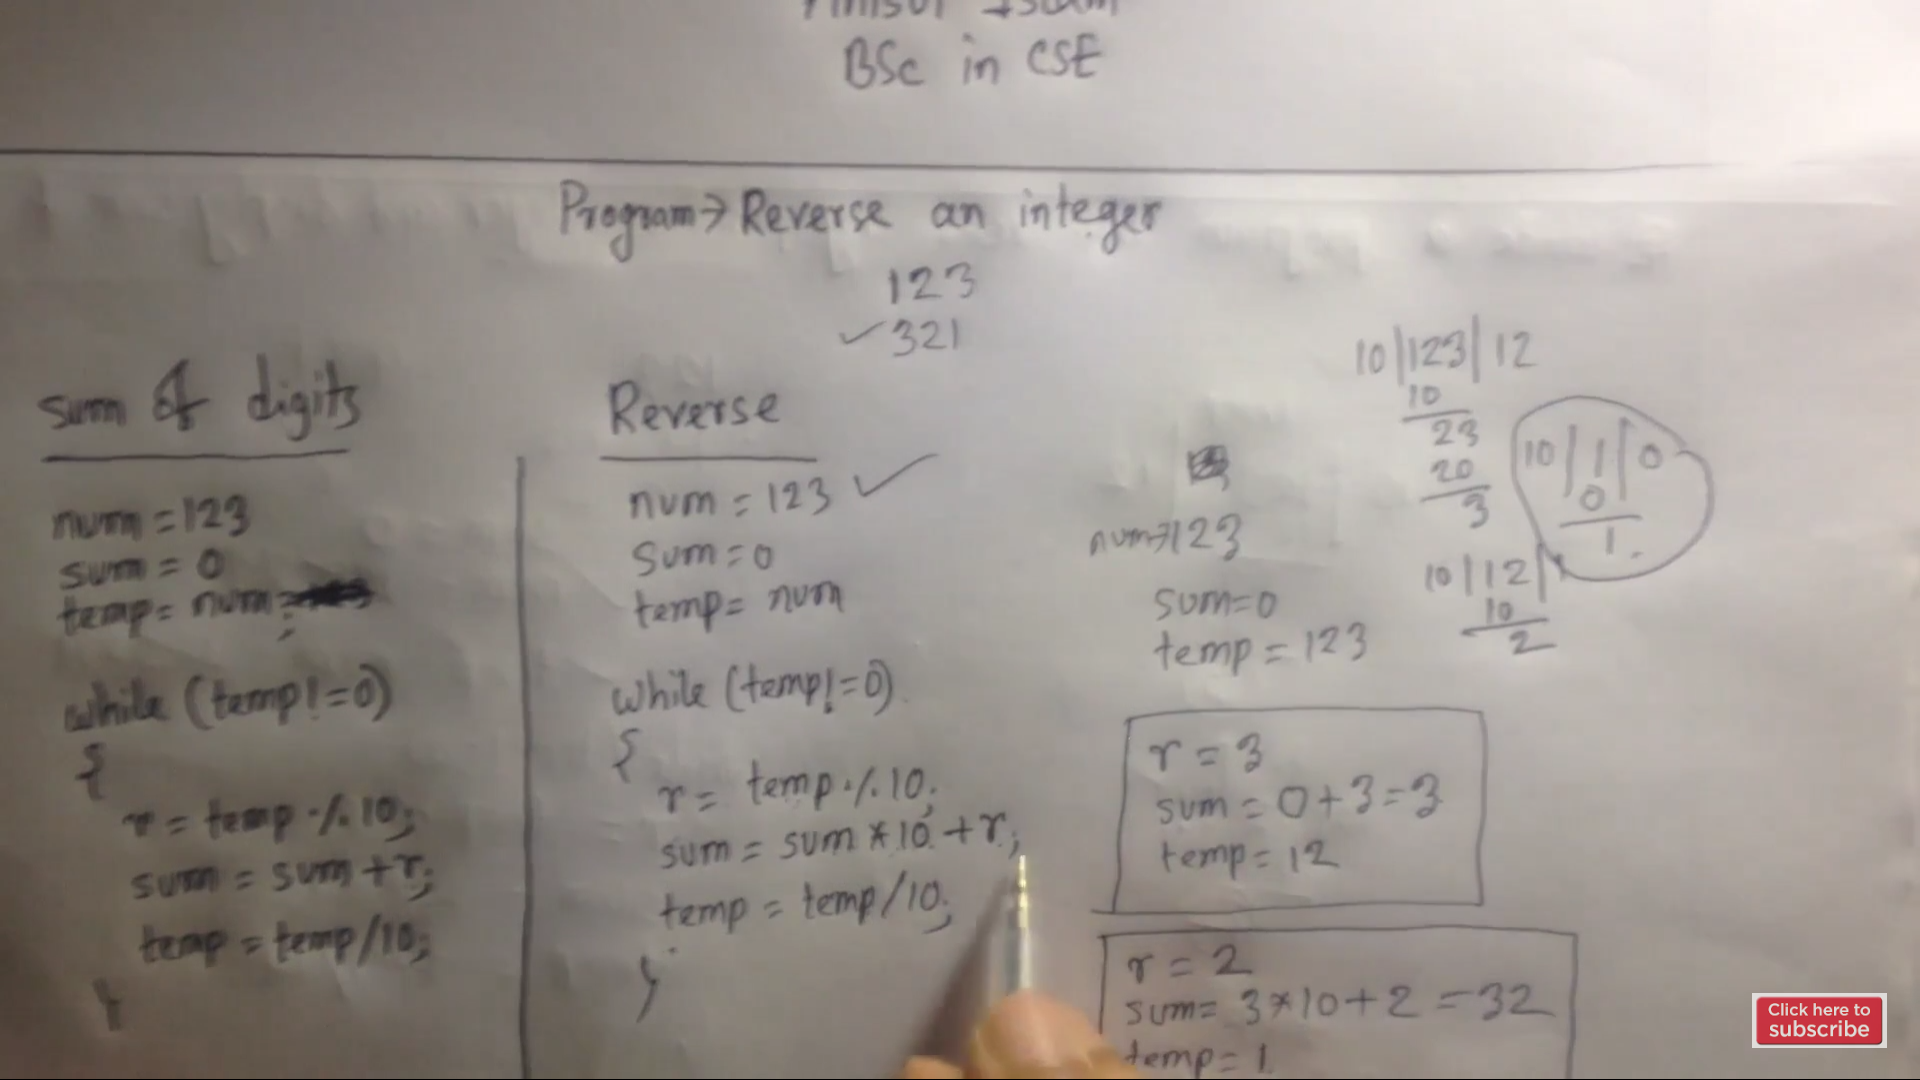 BSc in CSE
Program→ Reverse an integer
123
✓321
sum of digits
num = 123
sum = 0
temp = num;
while (temp!=0)
{
r = temp % 10;
sum = sum + r;
temp = temp/10;
}
Reverse
num = 123 ✓
sum = 0
temp = num
while (temp!=0)
{
r = temp % 10;
sum = sum * 10 + r;
temp = temp/10;
}
num→123
sum=0
temp = 123
10|123|12
10
23
20
3
10|1|0
0
1.
10|12|1
10
2
r = 3
sum = 0+3=3
temp= 12
r = 2
sum= 3*10+2 =32
temp= 1
Click here to
subscribe